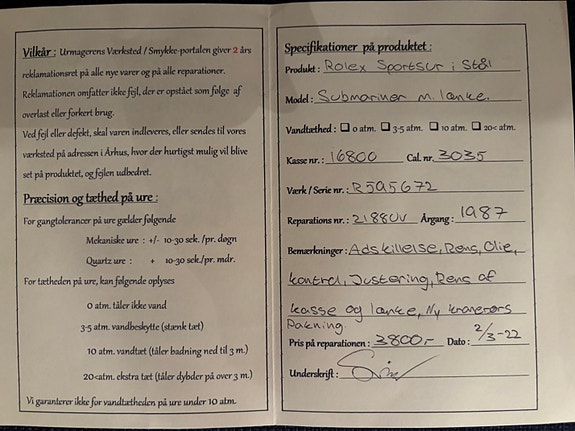 Vilkår : Urmagerens Værksted / Smykke-portalen giver 2 års
reklamationsret på alle nye varer og på alle reparationer.
Reklamationen omfatter ikke fejl, der er opstået som følge af
overlast eller forkert brug.
Ved fejl eller defekt, skal varen indleveres, eller sendes til vores
værksted på adressen i Århus, hvor der hurtigst mulig vil blive
set på produktet, og fejlen udbedret.
Præcision og tæthed på ure :
For gangtolerancer på ure gælder følgende
Mekaniske ure : +/- 10-30 sek./pr. døgn
Quartz ure : + 10-30 sek./pr. mdr.
For tætheden på ure, kan følgende oplyses
0 atm. tåler ikke vand
3-5 atm. vandbeskytte (stænk tæt)
10 atm. vandtæt (tåler badning ned til 3 m.)
20<atm. ekstra tæt (tåler dybder på over 3 m.)
Vi garanterer ikke for vandtætheden på ure under 10 atm.
Specifikationer på produktet :
Produkt : Rolex Sportsur i Stål
Model : Submariner m. lænke.
Vandtæthed : 0 atm. 3-5 atm. 10 atm. 20< atm.
Kasse nr. : 16800 Cal. nr. 3035
Værk / Serie nr. : R595672
Reparations nr. : 21880V Årgang : 1987
Bemærkninger : Adskillelse, Rens, Olie,
kontrol, Justering, Rens af
kasse og lænke, Ny kranerørs
Pakning.
Pris på reparationen : 3800,- Dato : 2/3-22
Underskrift :